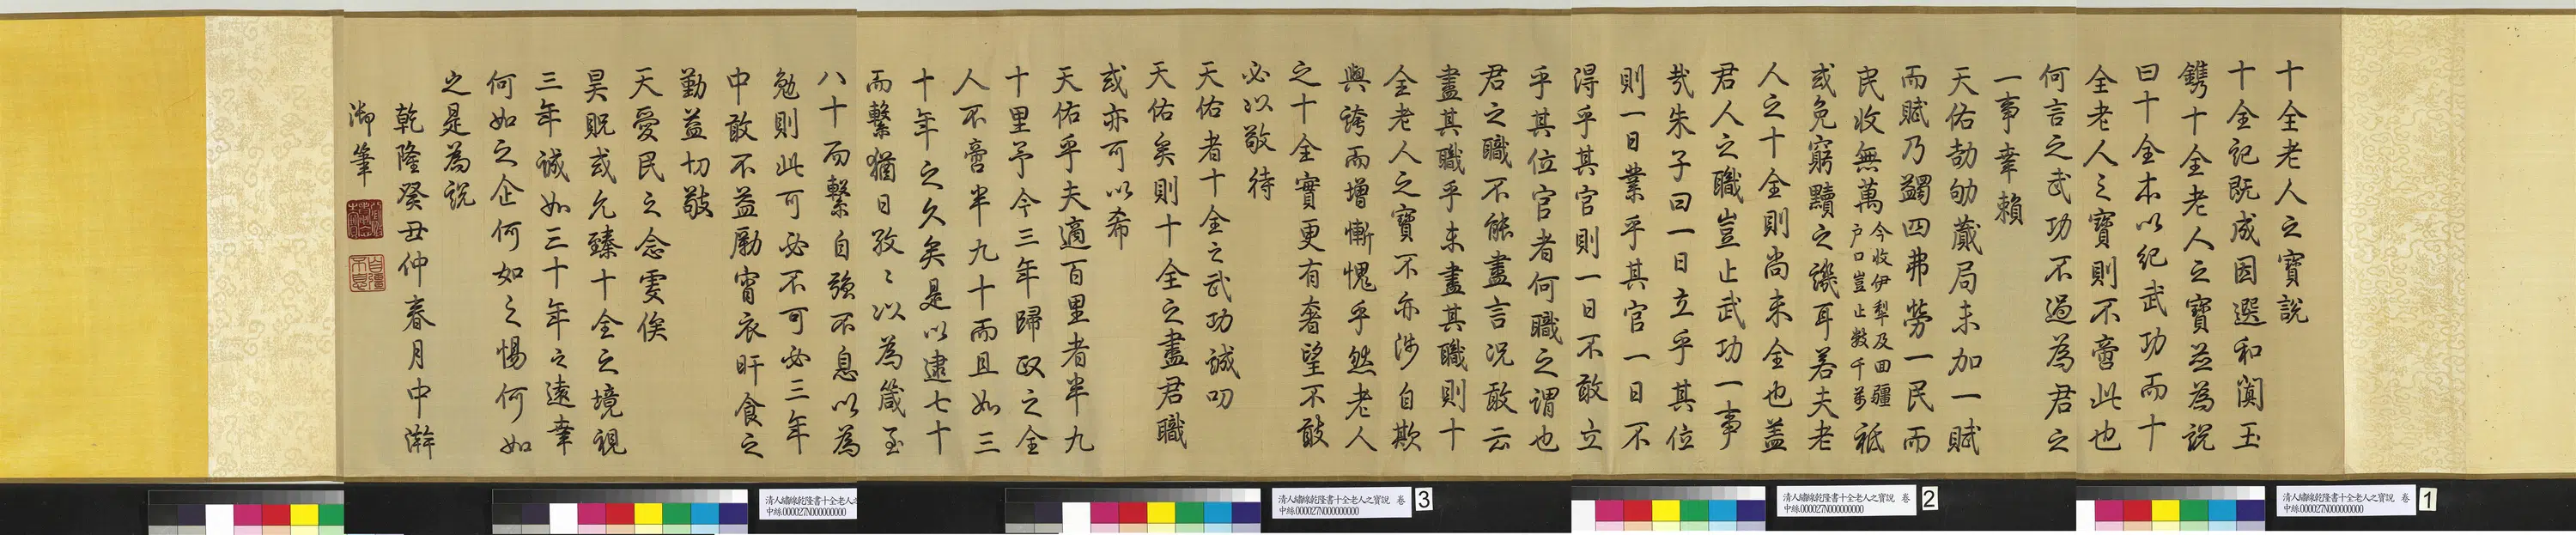 十全老人之寶說
十全記既成因選和闐玉
鐫十全老人之寶并為說
曰十全本以紀武功而十
全老人之寶則不啻此也
何言之武功不過為君之
一事幸賴
天佑劼劬蕆局未加一賦
而賦乃蠲四弗勞一民而
民收無萬今收伊犁及回疆
戶口豈止數千萬祗
或免窮黷之譏耳若夫老
人之十全則尚未全也蓋
君人之職豈止武功一事
哉朱子曰一日立乎其位
則一日業乎其官一日不
得乎其官則一日不敢立
乎其位官者何職之謂也
君之職不能盡言況敢云
盡其職乎未盡其職則十
全老人之寶不亦涉自欺
與誇而增慚愧乎然老人
之十全實更有奢望不敢
必以敬待
天佑者十全之武功誠叨
天佑矣則十全之盡君職
或亦可以希
天佑乎夫適百里者半九
十里予今三年歸政之全
人不啻半九十而且如三
十年之久矣是以逮七十
而繫猶日孜孜以為箴至
八十而繫自強不息以為
勉則此可必不可必三年
中敢不益勵宵衣旰食之
勤益切敬
天愛民之念雯俟
昊貺或允臻十全之境視
三年誠如三十年之遠幸
何如之企何如之惕何如
之是為說
乾隆癸丑仲春月中澣
御筆
自彊不息
清人繡線乾隆書十全老人之寶說 卷
中絲000027N000000000
3
清人繡線乾隆書十全老人之寶說 卷
中絲000027N000000000
2
清人繡線乾隆書十全老人之寶說 卷
中絲000027N000000000
1